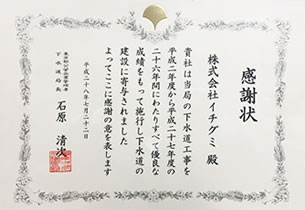 感謝状
株式会社イチグミ 殿
貴社は当局の下水道工事を
平成二年度から平成二十七年度の
二十六年間にわたりすべて優良な
成績をもって施行し下水道の
建設に寄与されました
よってここに感謝の意を表します
平成二十八年七月二十二日
下水道局長
石原 清次